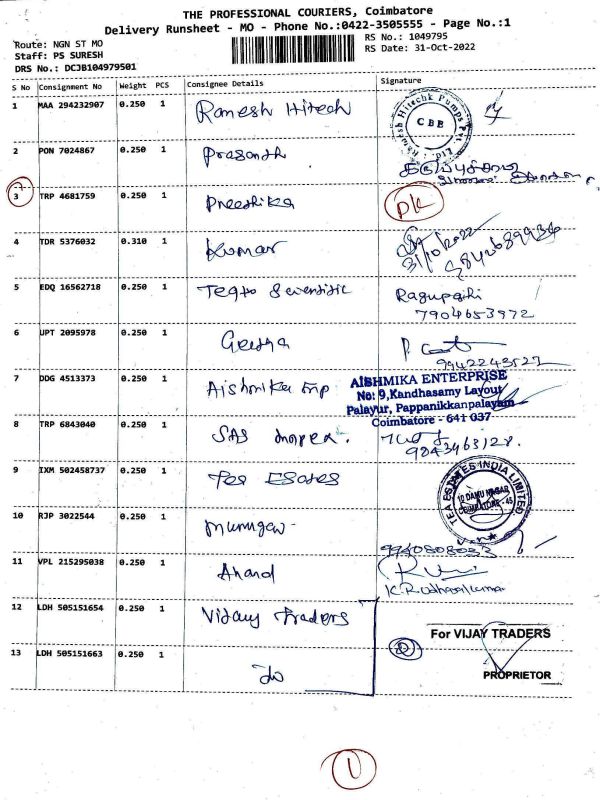 THE PROFESSIONAL COURIERS, Coimbatore
Delivery Runsheet - MO - Phone No.:0422-3505555 - Page No.:1
Route: NGN ST MO
RS No.: 1049795
Staff: PS SURESH
RS Date: 31-Oct-2022
DRS No.: DCJB104979501
S No Consignment No Weight PCS Consignee Details Signature
1 MAA 294232907 0.250 1 Ramesh Hitech
Ramesh Hitechk Pumps Pvt. Ltd.
CBE
2 PON 7024867 0.250 1 Prasanth
3 TRP 4681759 0.250 1 Preethika
4 TDR 5376032 0.310 1 Kumar
31/10/2022
9842689936
5 EDQ 16562718 0.250 1 Teqto Scientific Ragupathi
7904653972
6 UPT 2095978 0.250 1 Geetha
9942243527
7 DDG 4513373 0.250 1 Aishmika Enp
AISHMIKA ENTERPRISE
No: 9,Kandhasamy Layout
Palayur, Pappanikkanpalayam
Coimbatore - 641 037
8 TRP 6843040 0.250 1 SAS
9843463128.
9 IXM 502458737 0.250 1 Tea Esates
TEA ESTATES INDIA LIMITED
10 DAMU NAGAR
COIMBATORE - 45
10 RJP 3022544 0.250 1 Murugan
11 VPL 215295038 0.250 1 Anand
K.R. Udhayakumar
12 LDH 505151654 0.250 1 Vijay Traders
For VIJAY TRADERS
13 LDH 505151663 0.250 1 do
2
PROPRIETOR
1